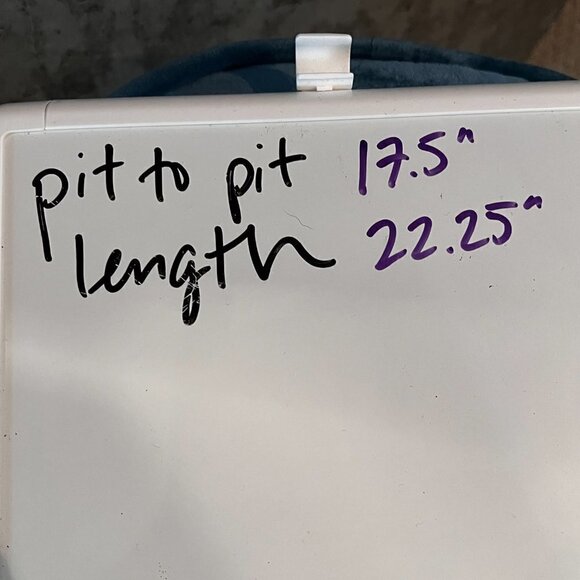 pit to pit 17.5"
length 22.25"